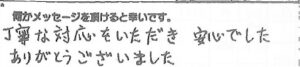 何かメッセージを頂けると幸いです。
丁寧な対応をいただき 安心でした
ありがとうございました